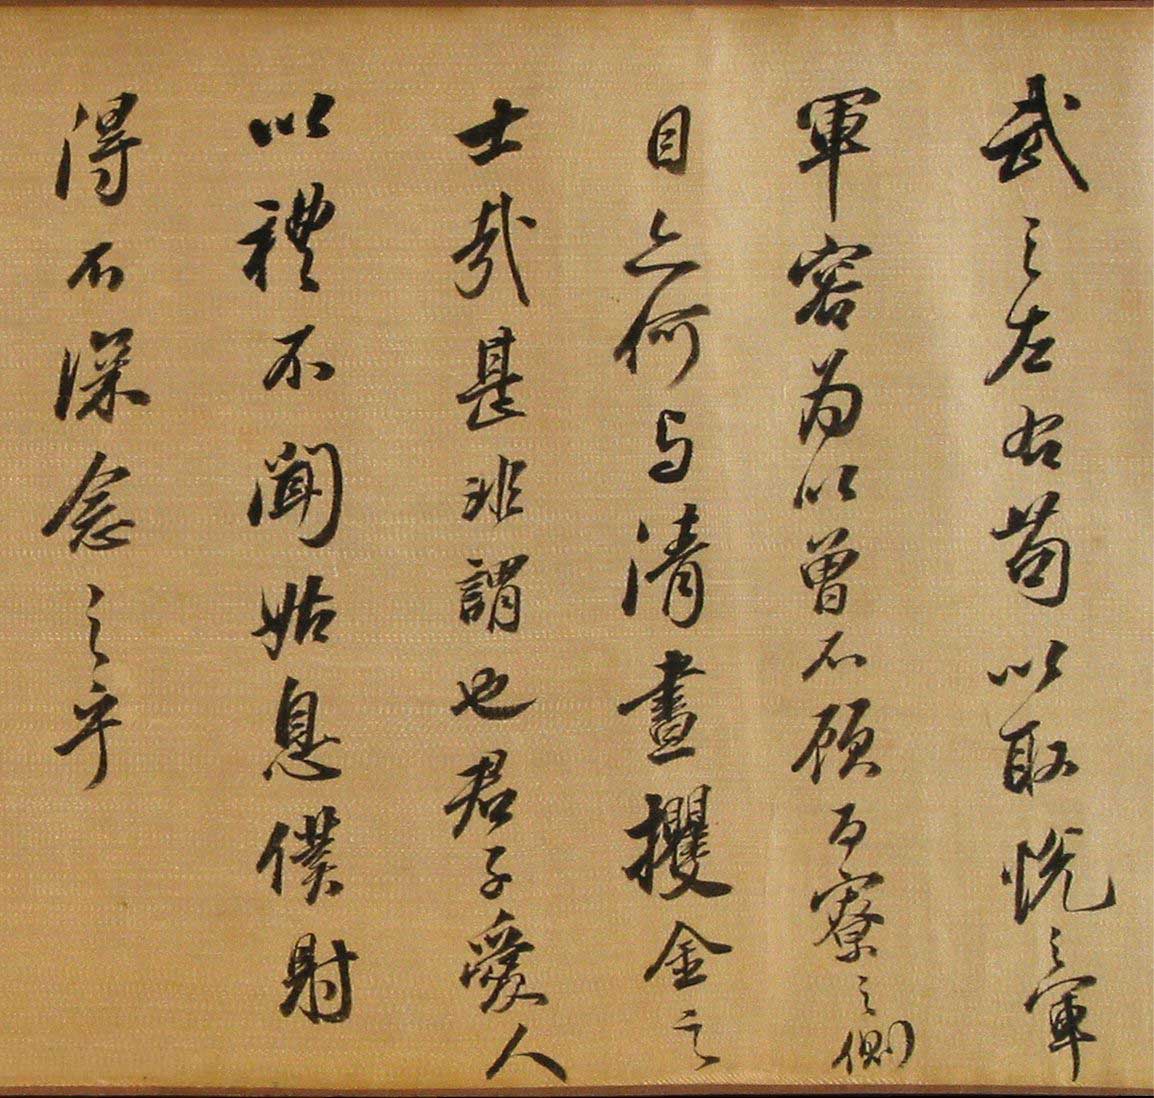 武之左右苟以取悅之軍
軍容為以曾不顧百寮之側
目亦何与清晝攫金之
士哉甚非謂也君子愛人
以禮不聞姑息僕射
得不深念之乎